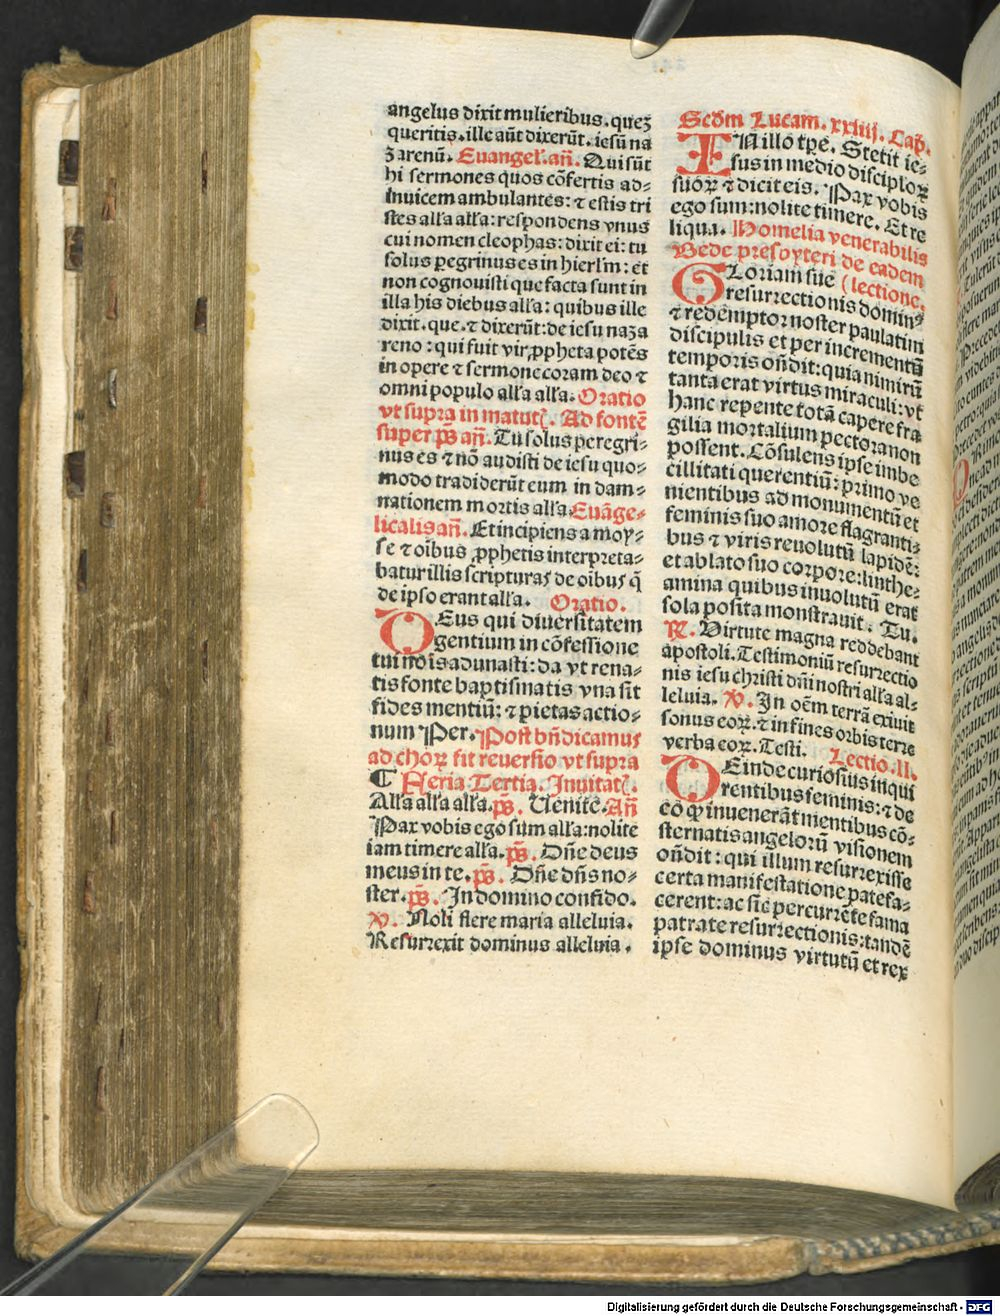 angelus dixit mulieribus. quez
queritis. ille aūt dixerūt. iesū na
zarenū. Euangel'. añ. Qui sūt
hi sermones quos cōfertis ad-
inuicem ambulantes: ⁊ estis tri
stes alľa alľa: respondens vnus
cui nomen cleophas: dixit ei: tu
solus ꝑegrinus es in hierľm: et
non cognouisti que facta sunt in
illa his diebus alľa: quibus ille
dixit. que. ⁊ dixerūt: de iesu naza
reno: qui fuit vir ꝓpheta potēs
in opere ⁊ sermone coram deo ⁊
omni populo alľa alľa. Oratio
vt supra in matut. Ad fontē
super p̄s añ. Tu solus peregri-
nus es ⁊ nō audisti de iesu quo-
modo tradiderūt eum in dam-
nationem mortis alľa. Euāge-
licalis añ. Et incipiens a moy-
se ⁊ oībus ꝓphetis interpreta-
batur illis scripturas de oībus q̄
de ipso erant alľa. Oratio.
DEus qui diuersitatem
gentium in cōfessione
tui nois adunasti: da vt rena-
tis fonte baptismatis vna sit
fides mentiū: ⁊ pietas actio-
num Per. Post bñdicamus
ad choꝝ fit reuersio vt supra
¶ Feria Tertia. Inuitat.
Alľa alľa alľa. p̄s. Uenite. Añ
Pax vobis ego sum alľa: nolite
iam timere alľa. p̄s. Dñe deus
meus in te. p̄s. Dñe dñs no-
ster. p̄s. In domino confido.
℣. Noli flere maria alleluia.
Resurrexit dominus alleluia.
Scđm Lucam. xxiiij. Cap.
IN illo tp̄e. Stetit ie-
sus in medio disciploꝝ
suoꝝ ⁊ dicit eis. Pax vobis
ego sum: nolite timere. Et re
liqua. Homelia venerabilis
Bede presbyteri de eadem
GLoriam sue (lectione.
resurrectionis dominꝰ
⁊ redēmptor noster paulatim
discipulis et per incrementū
temporis oñdit: quia nimirū
tanta erat virtus miraculi: vt
hanc repente totā capere fra
gilia mortalium pectora non
possent. Cōsulens ipse imbe
cillitati querentiū: primo ve
nientibus ad monumentū et
feminis suo amore flagranti-
bus ⁊ viris reuolutū lapidē:
et ablato suo corpore: linthe-
amina quibus inuolutū erat
sola posita monstrauit. Tu.
℟. Virtute magna reddebant
apostoli. Testimoniū resurrectio
nis iesu christi dñi nostri alľa al-
leluia. ℣. In oēm terrā exiuit
sonus eoꝝ. ⁊ in fines orbis terre
verba eoꝝ. Testi. Lectio. II.
DEinde curiosius inqui
rentibus feminis: ⁊ de
eo ꝙ inuenerāt mentibus cō-
sternatis angelorū visionem
oñdit: qui illum resurrexisse
certa manifestatione patefa-
cerent: ac sic percurrēte fama
patrate resurrectionis: tandē
ipse dominus virtutū et rex
Digitalisierung gefördert durch die Deutsche Forschungsgemeinschaft - DFG